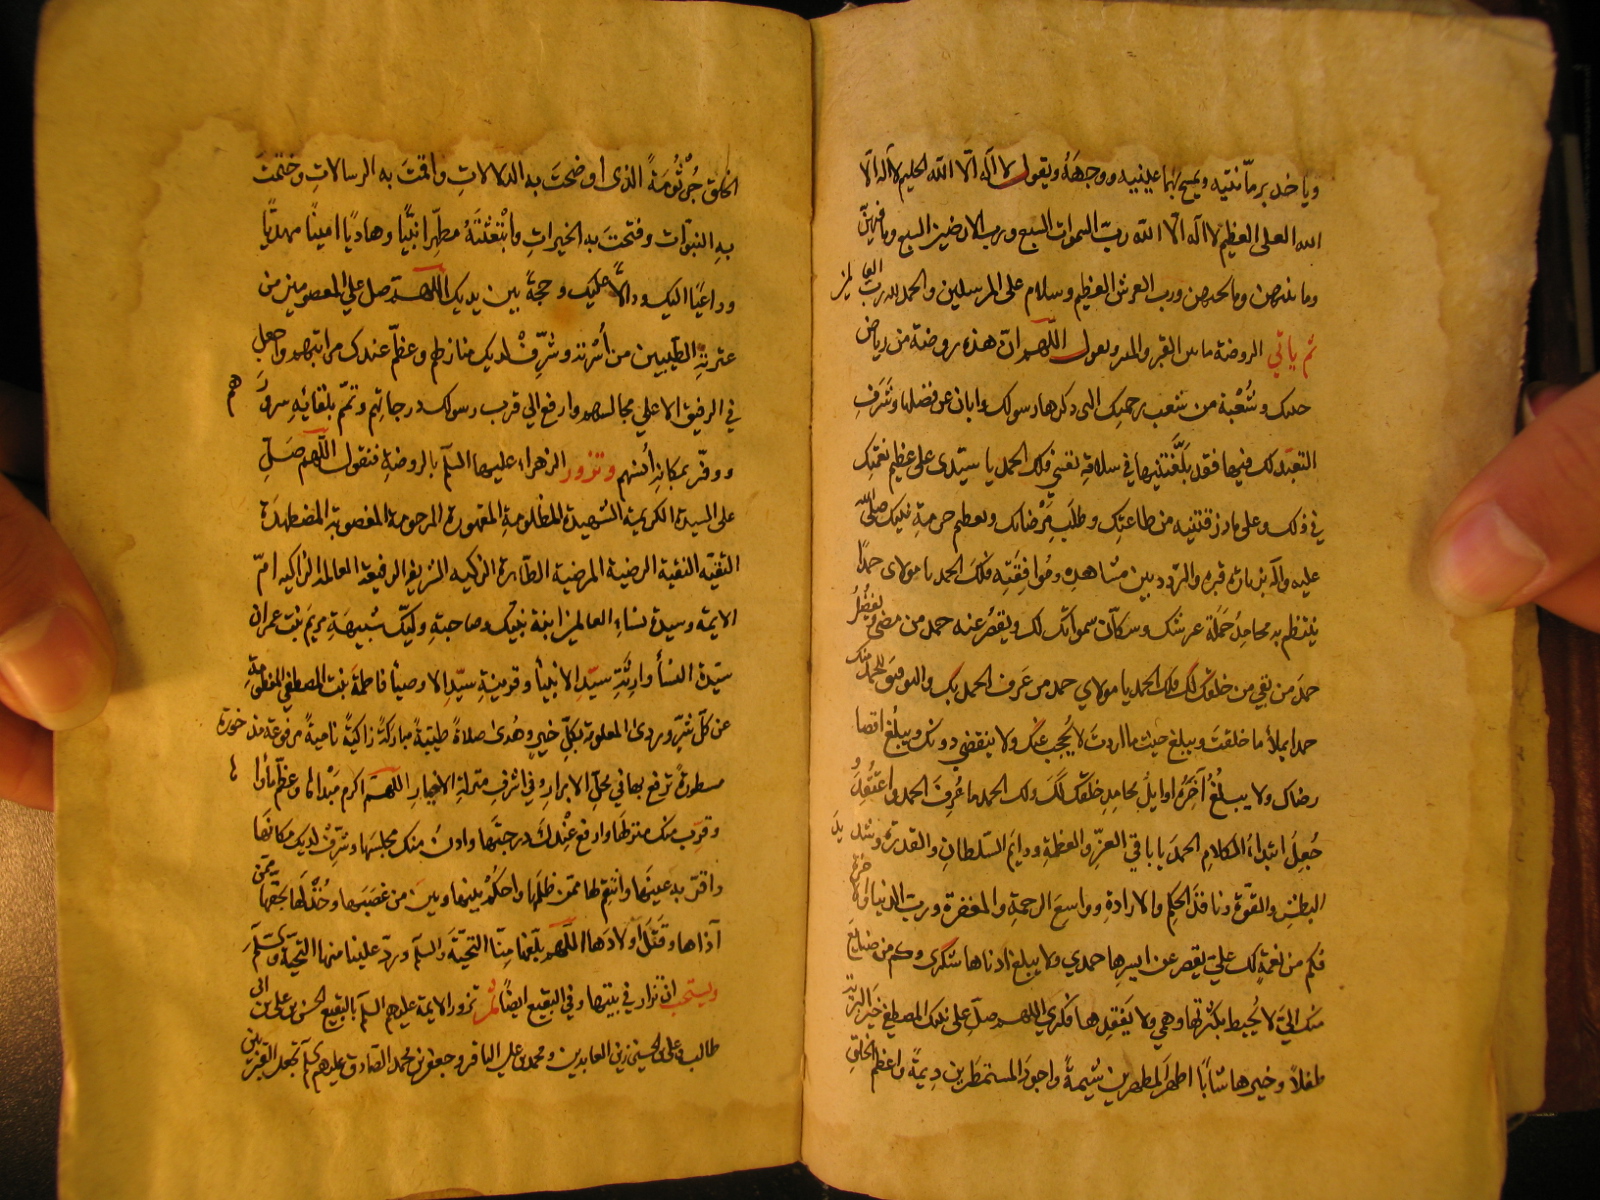 وياخذ برمّانتيه ويمسح بهما عينيه ووجهه ويقول لا اله الّا الله الحليم لا اله الّا
الله العلي العظيم لا اله الّا الله ربّ السموات السبع وربّ الارضين السبع وما فيهنّ
وما بينهن وما تحتهن ورب العرش العظيم وسلام على المرسلين والحمد لله رب العالمين
ثم ياتي الروضة ما بين القبر والمنبر ويقول اللّهم انّ هذه روضة من رياض
جنتك وشُعْبة من شعب رحمتك التي ذكرها رسولك وابان عن فضلها وشَرَفِ
التعبّد لك فيها فقد بلّغتنيها في سلامة نفسي فلك الحمد يا سيّدي على عظيم نعمتك
في ذلك وعلى ما رزقتنيه من طاعتك وطلَب مَرْضاتك وتعظيم حرمة نبيك صلى الله
عليه وآله بزيارة قبره والتردد بين مشاهده ومواقفه فلك الحمد يا مولاي حمدًا
ينتظم به محامد حَمَلة عرشك وسكّان سمواتك لك ويقصُر عنه حمد من مضى ويفضُلُ
حمدَ من بقي من خلقك لك فلك الحمد يا مولاي حمد من عَرف الحمد بك والتوفيق للحمد منك
حمدا يملأ ما خلقت ويبلغ حيث ما اردت لا يُحجب عنك ولا ينقضي دونك ويبلغ اقصا
رضاك ولا يبلُغُ آخرُهُ اوايلُ محامدِ خلقك لَكَ ولك الحمد ما عُرِفَ الحمد واعتُقِدَ
جُعِلَ ابتداءَ الكلامِ الحمدَ يا باقي العزّ والعظمةِ ودايمَ السّلطانِ والقدرة وشديدَ
البطش والقوّة ونافذَ الحكم والارادة وواسعَ الرحمةِ والمغفرة وربّ الدنيا والآخرة
فكم من نعمةٍ لك عليّ يقصر عن ايسرها حمدي ولا يبلغ ادناها شكري وكم من صنايعَ
منك اليّ لا يُحيط بكثرتها وهمي ولا يقيّدها فكري اللهم صلّ على نبيك المصطفى خير البرية
طفلًا وخيرها شابًّا اطهرَ المطهرين شيمةً واجودَ المستمطَرين ديمةً واعظم الخلق
الخلق جُرْثُومَةً الذي اوضحتَ به الدلالاتِ واقمتَ به الرسالاتِ وختمتَ
به النبوّات وفتحتَ به الخيراتِ وابْتعَثْتَهُ مطهّرا نبيًّا وهاديًا امينًا مهديًّا
وداعيًا اليك ودالًّا عليك وحجةً بين يديك اللّهم صل علي المعصومين من
عترته الطيبين من أُسْرته وشرّف لديك منازلهم وعظّم عندك مراتبهم واجعل
في الرفيق الاعلى مجالسهم وارفع الي قرب رسولك درجاتهم وتمّم بلقائه سرورَهم
ووفّر بمكانه أُنسهم وتزور الزهراء عليها السلم بالروضة فتقول اللّهم صَلِّ
على السيدة الكريمة الشهيدة المظلومة المقهورة المرحومة المغصوبة المضطهدة
التقيّة النقية الرضية المرضية الطاهرة الزكيه الشريفة الرفيعة العالمة الزاكيه امّ
الايمة وسيدة نساءِ العالمين ابنة نبيك وصاحبة وليّك شبيهةِ مريمَ بنت عمران
سيّدة النسأ وارثةِ سيّد الانبيأ وقرينةِ سيّد الاوصيأ فاطمةَ بنت المصطفي المفطومة
عن كلّ شرّ وردى المعلومة بكلّ خيرٍ وهُدى صلاةً طيّبةً مباركةً زاكيةً ناميةً مرفوعة مذخورة
مسطورةً ترفع بها في محلّ الابرار وفي اشرفِ منزلةِ الاخيار اللهم اكرم مَبْداها وعظّم مآبها
وقرّب منك منزلها وارفع عِنْدكَ درجتَها وادن منك مجلسَها وشرّفْ لديك مكانها
واقرّ به عينها وانتقم لها ممّن ظلمها واحكُمْ بينها وبين من غصَبَها وخُذْ لها بحقّها ممّن
آذاها وقتَلَ اولادَها اللّهم بلّغها منّا التحيّةَ والسلم وردّ علينا منها التحيّة والسلم
ويستحب ان تزار في بيتها وفي البقيع ايضًا ثم تزور الايمة عليهم السلم بالبقيع الحسن بن علي بن ابي
طالب وعلي بن الحسين زين العابدين ومحمد بن علي الباقر وجعفر بن محمد الصادق عليهم السلم تجعل القبر بين